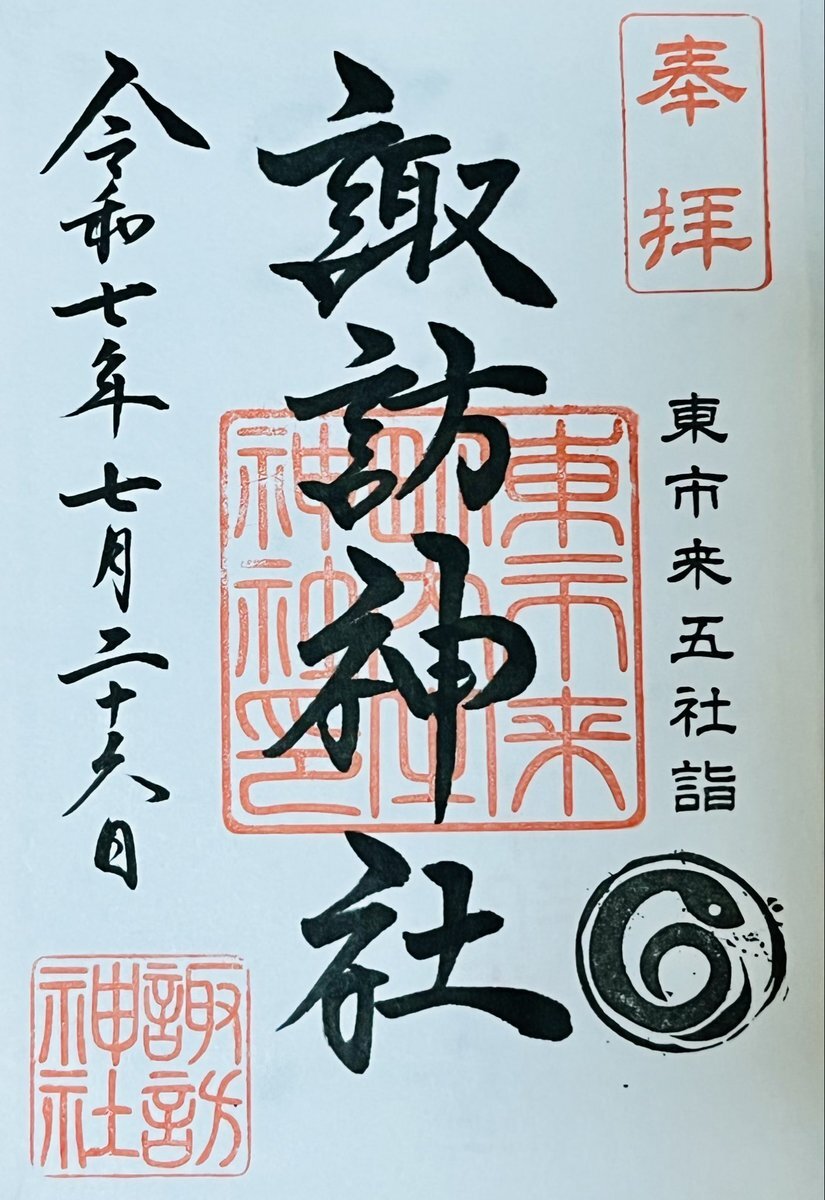 奉拝
東市来五社詣
諏訪神社
東市来
令和七年七月二十六日
諏訪
神社